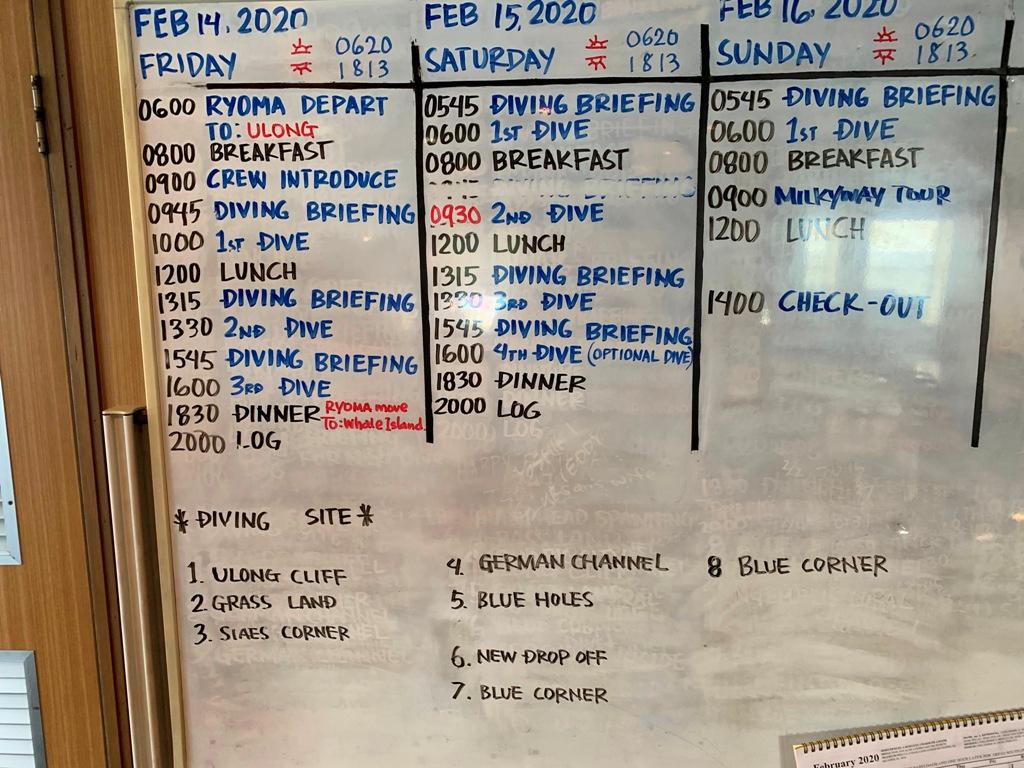 FEB 14, 2020
FRIDAY 0620
1813
0600 RYOMA DEPART
TO: ULONG
0800 BREAKFAST
0900 CREW INTRODUCE
0945 DIVING BRIEFING
1000 1ST DIVE
1200 LUNCH
1315 DIVING BRIEFING
1330 2ND DIVE
1545 DIVING BRIEFING
1600 3RD DIVE
1830 DINNER RYOMA move
TO: Whale Island
2000 LOG
FEB 15, 2020
SATURDAY 0620
1813
0545 DIVING BRIEFING
0600 1ST DIVE
0800 BREAKFAST
0930 2ND DIVE
1200 LUNCH
1315 DIVING BRIEFING
1330 3RD DIVE
1545 DIVING BRIEFING
1600 4TH DIVE (OPTIONAL DIVE)
1830 DINNER
2000 LOG
FEB 16, 2020
SUNDAY 0620
1813.
0545 DIVING BRIEFING
0600 1ST DIVE
0800 BREAKFAST
0900 MILKYWAY TOUR
1200 LUNCH
1400 CHECK-OUT
* DIVING SITE *
1. ULONG CLIFF
2. GRASS LAND
3. SIAES CORNER
4. GERMAN CHANNEL
5. BLUE HOLES
6. NEW DROP OFF
7. BLUE CORNER
8 BLUE CORNER
February 2020